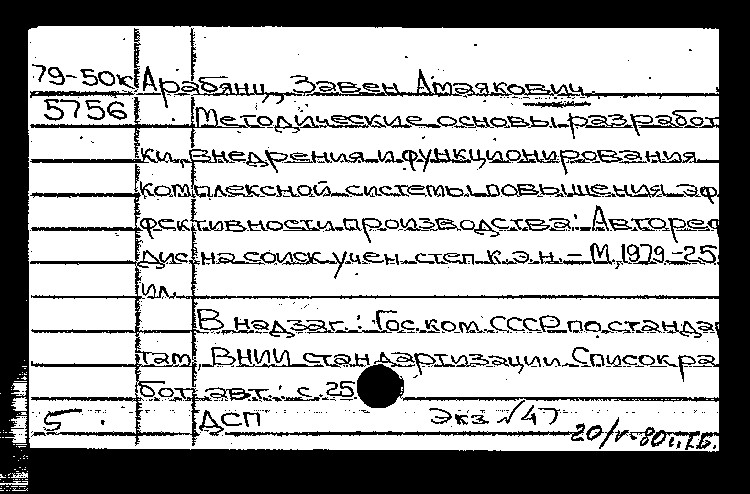 79-50к Арабянц, Завен Амаякович
5756 Методические основы разработ
ки, внедрения и функционирования
комплексной системы повышения эф
фективности производства: Авторе
дис. на соиск учен степ к.э.н. - М, 1979.-25
ил.
В надзаг.: Гос. ком. СССР по станда
там, ВНИИ стандартизации Список ра
бот авт.: с. 25
5. ДСП Экз. №47
20/V-80г.